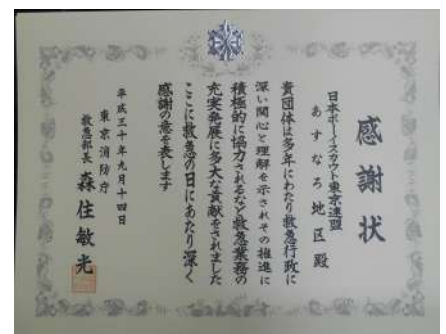 感謝状
日本ボーイスカウト東京連盟
あすなろ地区殿
貴団体は多年にわたり救急行政に
深い関心と理解を示されその推進に
積極的に協力されるなど救急業務の
充実発展に多大な貢献をされました
ここに救急の日にあたり深く
感謝の意を表します
平成三十年九月十四日
東京消防庁
救急部長 森住敏光